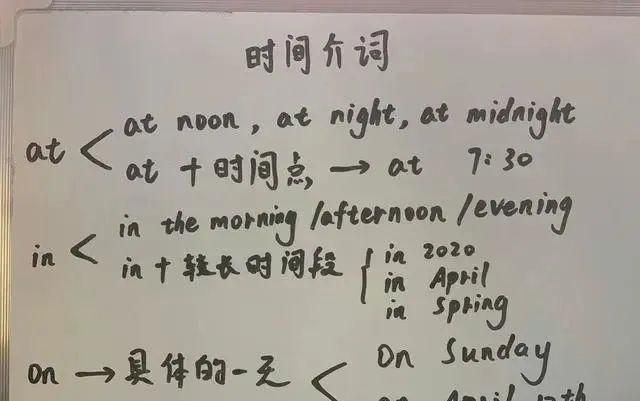 时间介词
at < at noon, at night, at midnight
at + 时间点 → at 7:30
in < in the morning /afternoon /evening
in + 较长时间段 { in 2020
in April
in spring
on → 具体的一天 < On Sunday
April